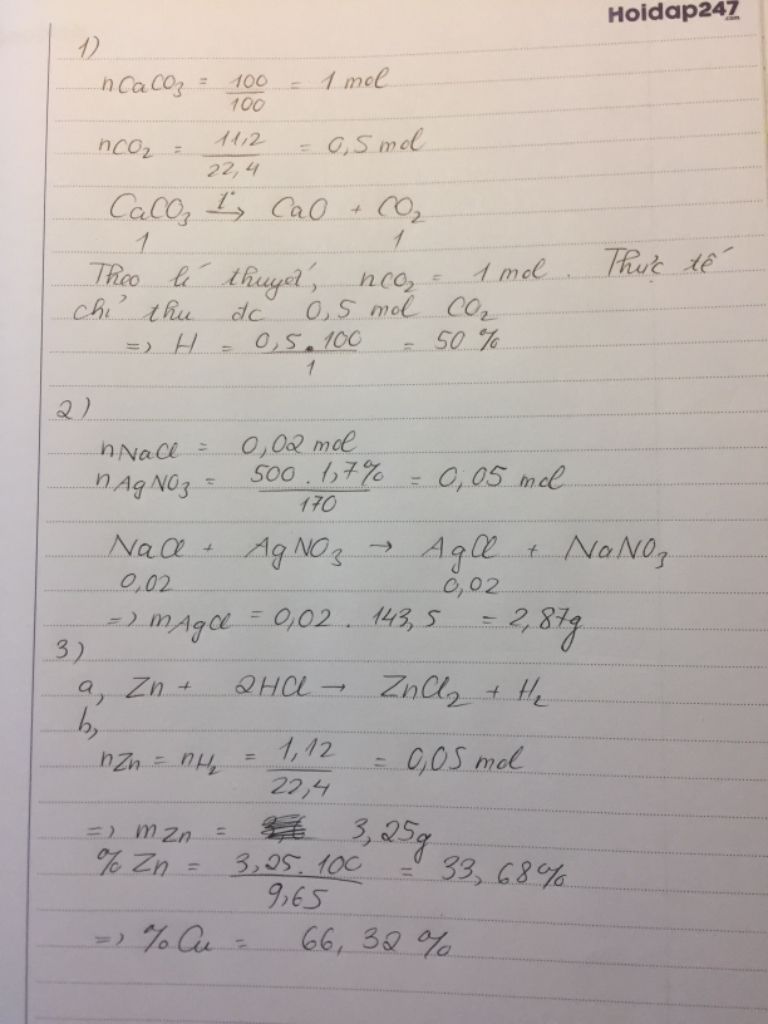 Hoidap247
.com
1)
nCaCO₃ = 100/100 = 1 mol
nCO₂ = 11,2/22,4 = 0,5 mol
CaCO₃ t°→ CaO + CO₂
1 1
Theo lí thuyết, nCO₂ = 1 mol. Thực tế
chỉ thu đc 0,5 mol CO₂
=> H = 0,5.100/1 = 50 %
2)
nNaCl = 0,02 mol
nAgNO₃ = 500.1,7%/170 = 0,05 mol
NaCl + AgNO₃ → AgCl + NaNO₃
0,02 0,02
=> mAgCl = 0,02. 143,5 = 2,87g
3)
a, Zn + 2HCl → ZnCl₂ + H₂
b,
nZn = nH₂ = 1,12/22,4 = 0,05 mol
=> mZn = 3,25g
%Zn = 3,25.100/9,65 = 33,68%
=> %Cu = 66,32 %